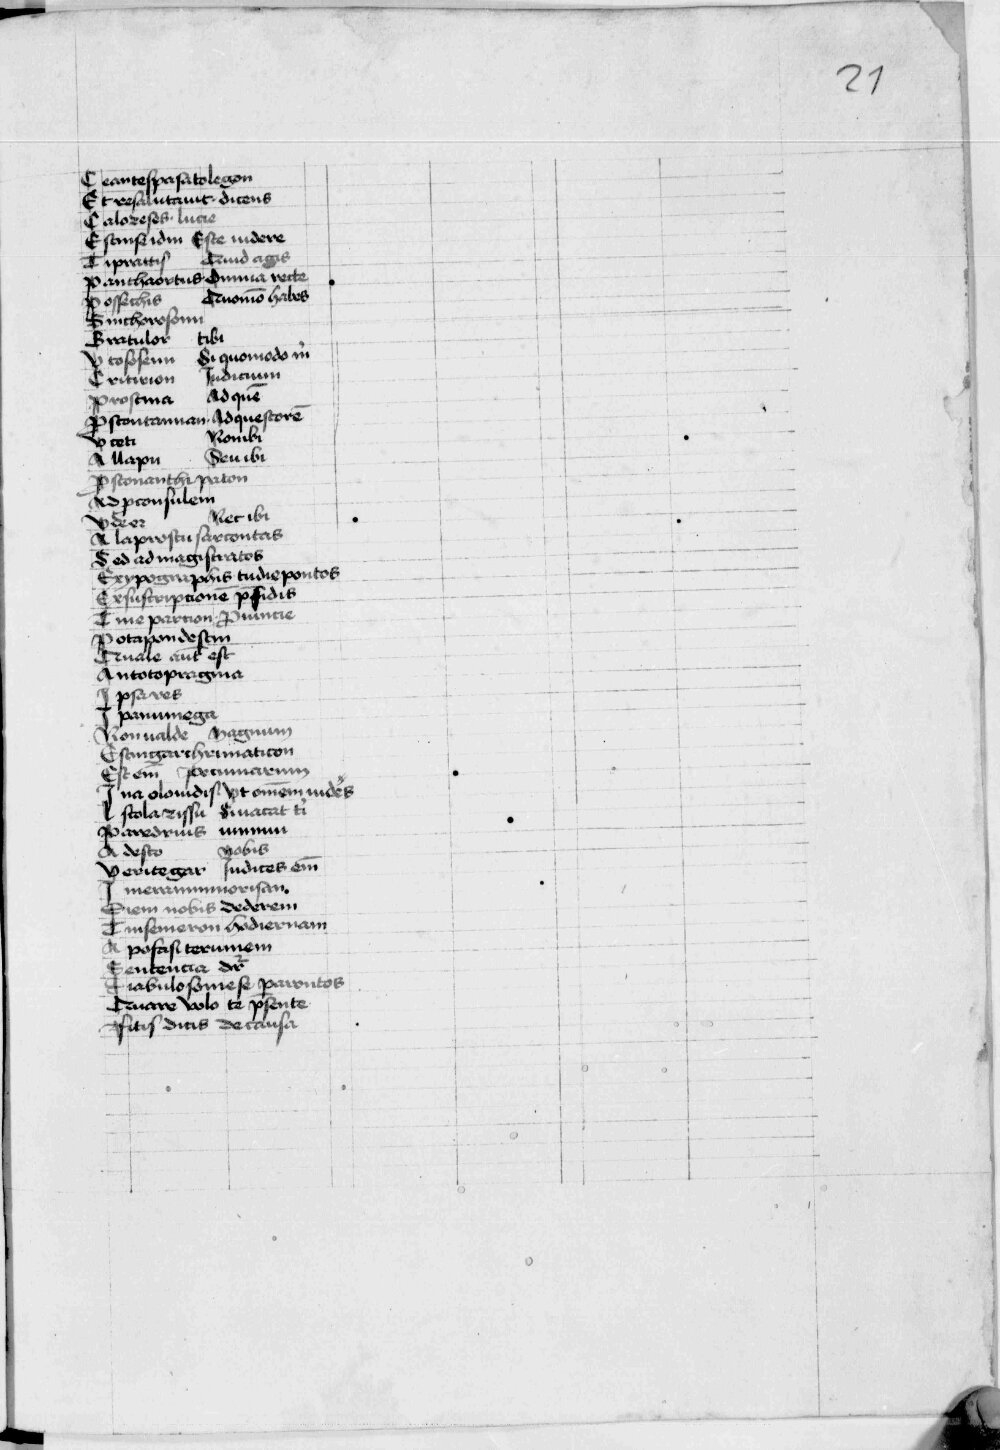 21
Ceantespasatolegon
Et resalutauit dicens
Caloreses lucie
Estinseidin Este uidere
Tiprattis Quid agis
Panthaortus Omnia recte
Possechis Quomō habes
Sinchorosoim
Gratulor tibi
Vtososeun Si quomodo m̄
Critirion Iudicium
Prostina Ad quē
Pstontaunan Ad questorē
Vceti Non ibi
Allapu Seu ibi
Pstonanthi paton
Ad pconsulem
Vdeer Nec ibi
Alaprostu sarcontas
Sed ad magistratos
Exypographis tudiepontos
Exsuscriptionē psidis
Tine partion Puincie
Potapondestin
Quale aut est
Antotopragma
Ipsa res
Ipanumega
Non ualde Magnum
Estingarchrimaticon
Est em Pecuniarum
Ina olouidis Vt omēm uidēs
Istolazissu Si uacat ti
Paredrius
Adesto Nobis
Veritegar Iudices em̄
Diem nobis dederem
Tinsemeron hodiernam
Apofasi terumem
Sentencia dr̄
Tiabulosomese parontos
Quare volo te psente
Tfitis dicis De causa